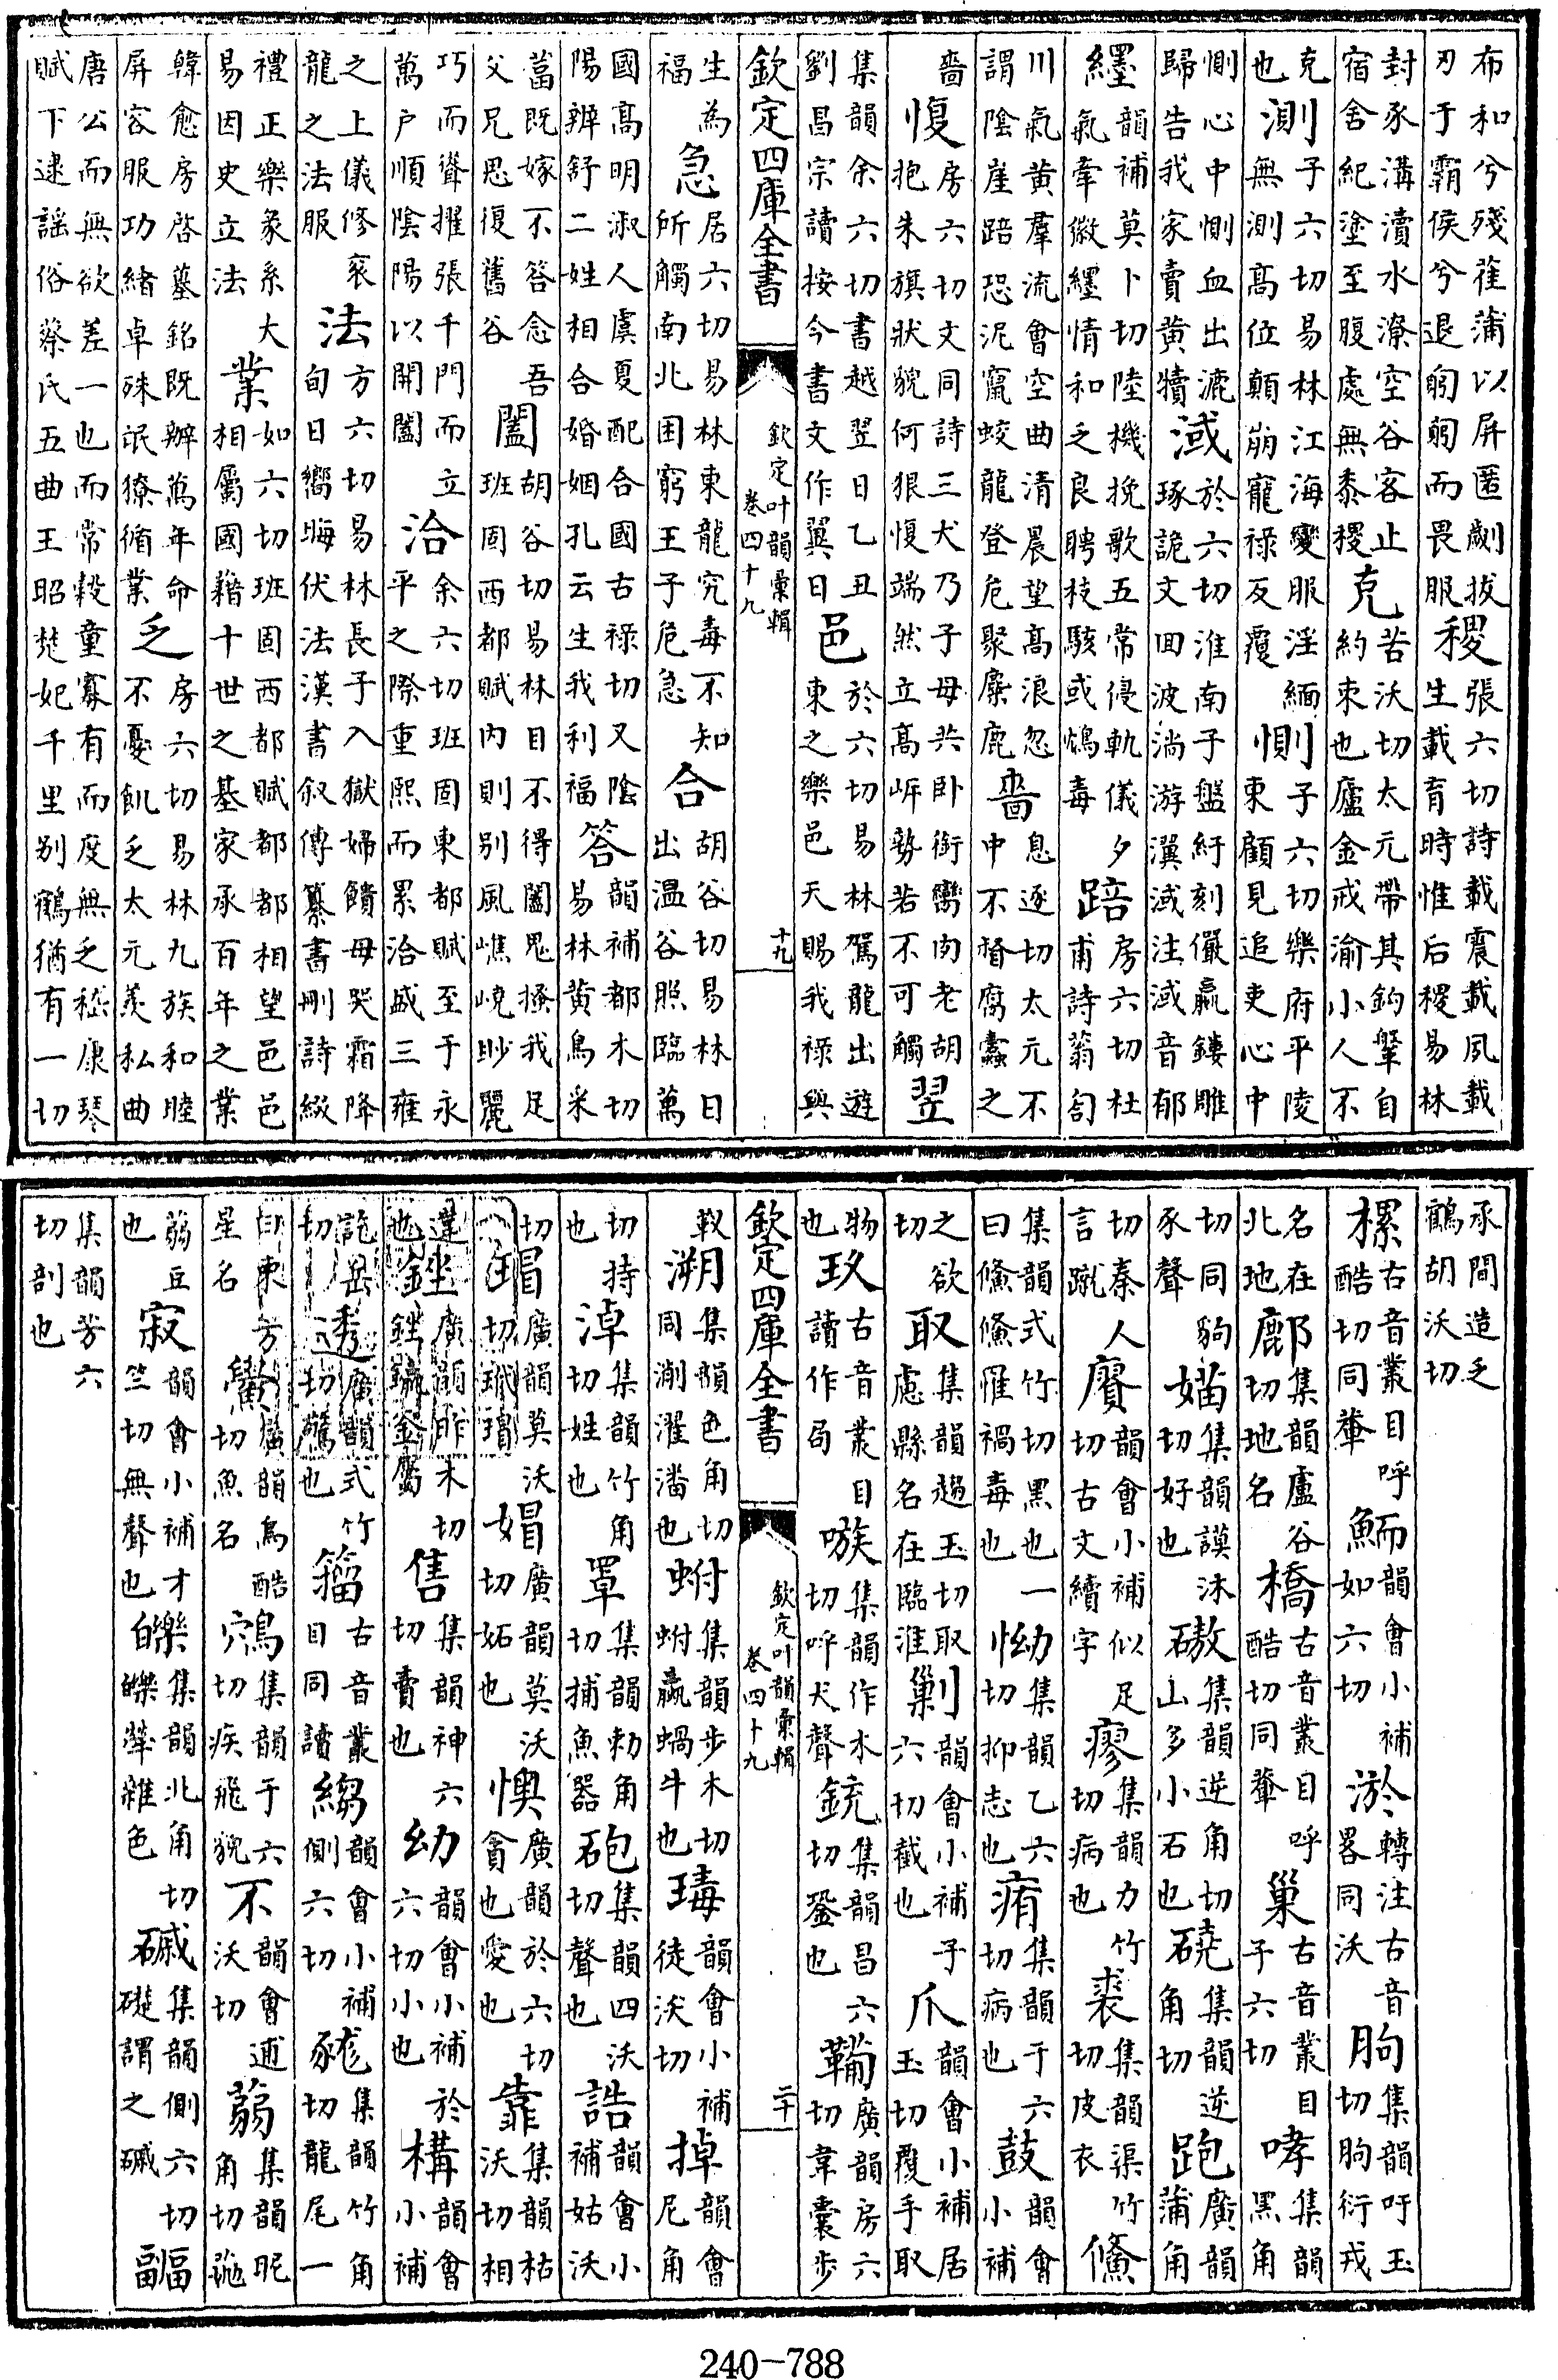 布和兮殘萑蒲以屏匿劇拔
刃于霸侯兮退躬躬而畏服
稷
張六切詩載震載夙載
生載育時惟后稷易林
封豕溝瀆水潦空谷客止
宿舍紀塗至腹處無黍稷
克
苦沃切太元帶其鈎鞶自
約束也廬金戒渝小人不
克
也
測
子六切易林江海變服淫緬
無測高位顛崩寵祿反覆
惻
子六切樂府平陵
東顧見追吏心中
惻心中惻血出漉
歸告我家賣黃犢
淢
於六切淮南子盤紆刻儼嬴鏤雕
琢詭文囬波淌游瀷淢注淢音郁
纆
韻補莫卜切陸機挽歌五常侵軌儀夕
氣牽徽纆情和乏良聘枝駭或鴆毒
踣
房六切杜
甫詩蓊匌
川氣黃羣流會空曲清晨望高浪忽
謂陰崖踣恐泥竄蛟龍登危聚麋鹿
嗇
息逐切太元不
中不督腐蠹之
嗇
愎
房六切文同詩三犬乃子母共卧銜巒肉老胡
抱朱旗狀貌何狠愎端然立高岸勢若不可觸
翌
集韻余六切書越翌日乙丑
劉昌宗讀按今書文作翼日
邑
於六切易林駕龍出遊
東之樂邑天賜我祿與
欽定四庫全書
欽定叶韻彙輯
卷四十九
十九
生為
福
急
居六切易林東龍冤毒不知
所觸南北困窮王子危急
合
胡谷切易林日
出温谷照臨萬
國高明淑人虞夏配合國古祿切又陰
陽辨舒二姓相合婚姻孔云生我利福
答
韻補都木切
易林黃鳥采
葍既嫁不答念吾
父兄思復舊谷
闔
胡谷切易林目不得闔鬼搔我足
班固西都賦内則别風嶕嶢眇麗
巧而聳擢張千門而立
萬户順陰陽以開闔
洽
余六切班固東都賦至于永
平之際重熙而累洽盛三雍
之上儀修衮
龍之法服
法
方六切易林長子入獄婦饋母哭霜降
旬日嚮晦伏法漢書叙傳纂書刪詩綴
禮正樂彖系大
易因史立法
業
如六切班固西都賦都都相望邑邑
相屬國藉十世之基家承百年之業
韓愈房啓墓銘既辦萬年命
屏容服功緒卓殊氓獠循業
乏
房六切易林九族和睦
不憂飢乏太元羨私曲
唐公而無欲差一也而常穀童寡有而度無乏嵇康琴
賦下逮謡俗蔡氏五曲王昭楚妃千里别鶴猶有一切
承間造乏
鶴胡沃切
樏
古音叢目呼
酷切同犖
鮞
韻會小補
如六切
淤
轉注古音
畧同沃
朐
集韻吁玉
切朐衍戎
名在
北地
鄜
集韻盧谷
切地名
橋
古音叢目呼
酷切同犖
巢
古音叢目
子六切
哮
集韻
黑角
切同
豕聲
媌
集韻謨沐
切好也
磝
集韻逆角切
山多小石也
磽
集韻逆
角切
跑
廣韻
蒲角
切秦人
言蹴
賡
韻會小補似足
切古文續字
瘳
集韻力竹
切病也
裘
集韻渠竹
切皮衣
儵
集韻式竹切黑也一
曰儵儵罹禍毒也
怮
集韻乙六
切抑志也
痏
集韻于六
切病也
鼓
韻會
小補
之欲
切
取
集韻趨玉切取
慮縣名在臨淮
剿
韻會小補子
六切截也
爪
韻會小補居
玉切覆手取
物
也
玖
古音叢目
讀作局
嗾
集韻作木
切呼犬聲
銃
集韻昌六
切銎也
鞴
廣韻房六
切韋囊步
欽定四庫全書
欽定叶韻彙輯
卷四十九
二十
靫
溯
集韻色角切
同涮濯潘也
蚹
集韻步木切
蚹蠃蝸牛也
瑇
韻會小補
徒沃切
掉
韻會
尼角
切持
也
淖
集韻竹角
切姓也
罩
集韻勑角
切捕魚器
砲
集韻四沃
切聲也
誥
韻會小
補姑沃
切
瑁
廣韻莫沃
切瑇瑁
媢
廣韻莫沃
切妬也
懊
廣韻於六切
貪也愛也
靠
集韻枯
沃切相
違
也
銼
廣韻昨木切
銼鑹釜屬
售
集韻神六
切賣也
幼
韻會小補於
六切小也
構
韻會
小補
訖岳
切
透
廣韻式竹
切驚也
籀
古音叢
目同讀
縐
韻會小補
側六切
集韻竹角
切龍尾一
曰東方
星名
鱟
廣韻烏酷
切魚名
鴥
集韻于六
切疾飛貌
不
韻會逋
沃切
蒻
集韻昵
角切
蒻豆
也
寂
韻會小補才
竺切無聲也
集韻北角切
犖雜色
磩
集韻側六切
礎謂之磩
集韻芳六
切剖也
240-788